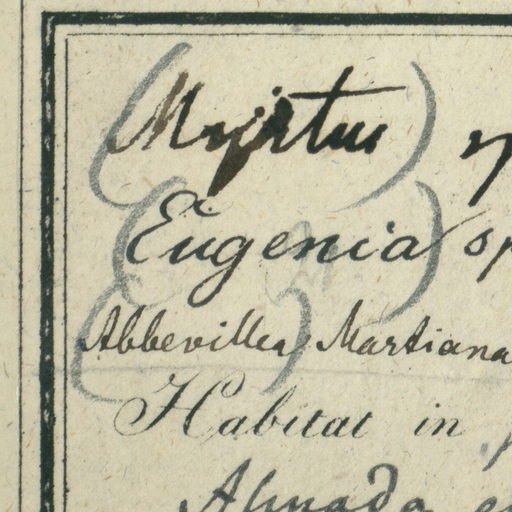 (Myrtus)
(Eugenia) sp
(Abbevillea) Martiana
Habitat in
Almada